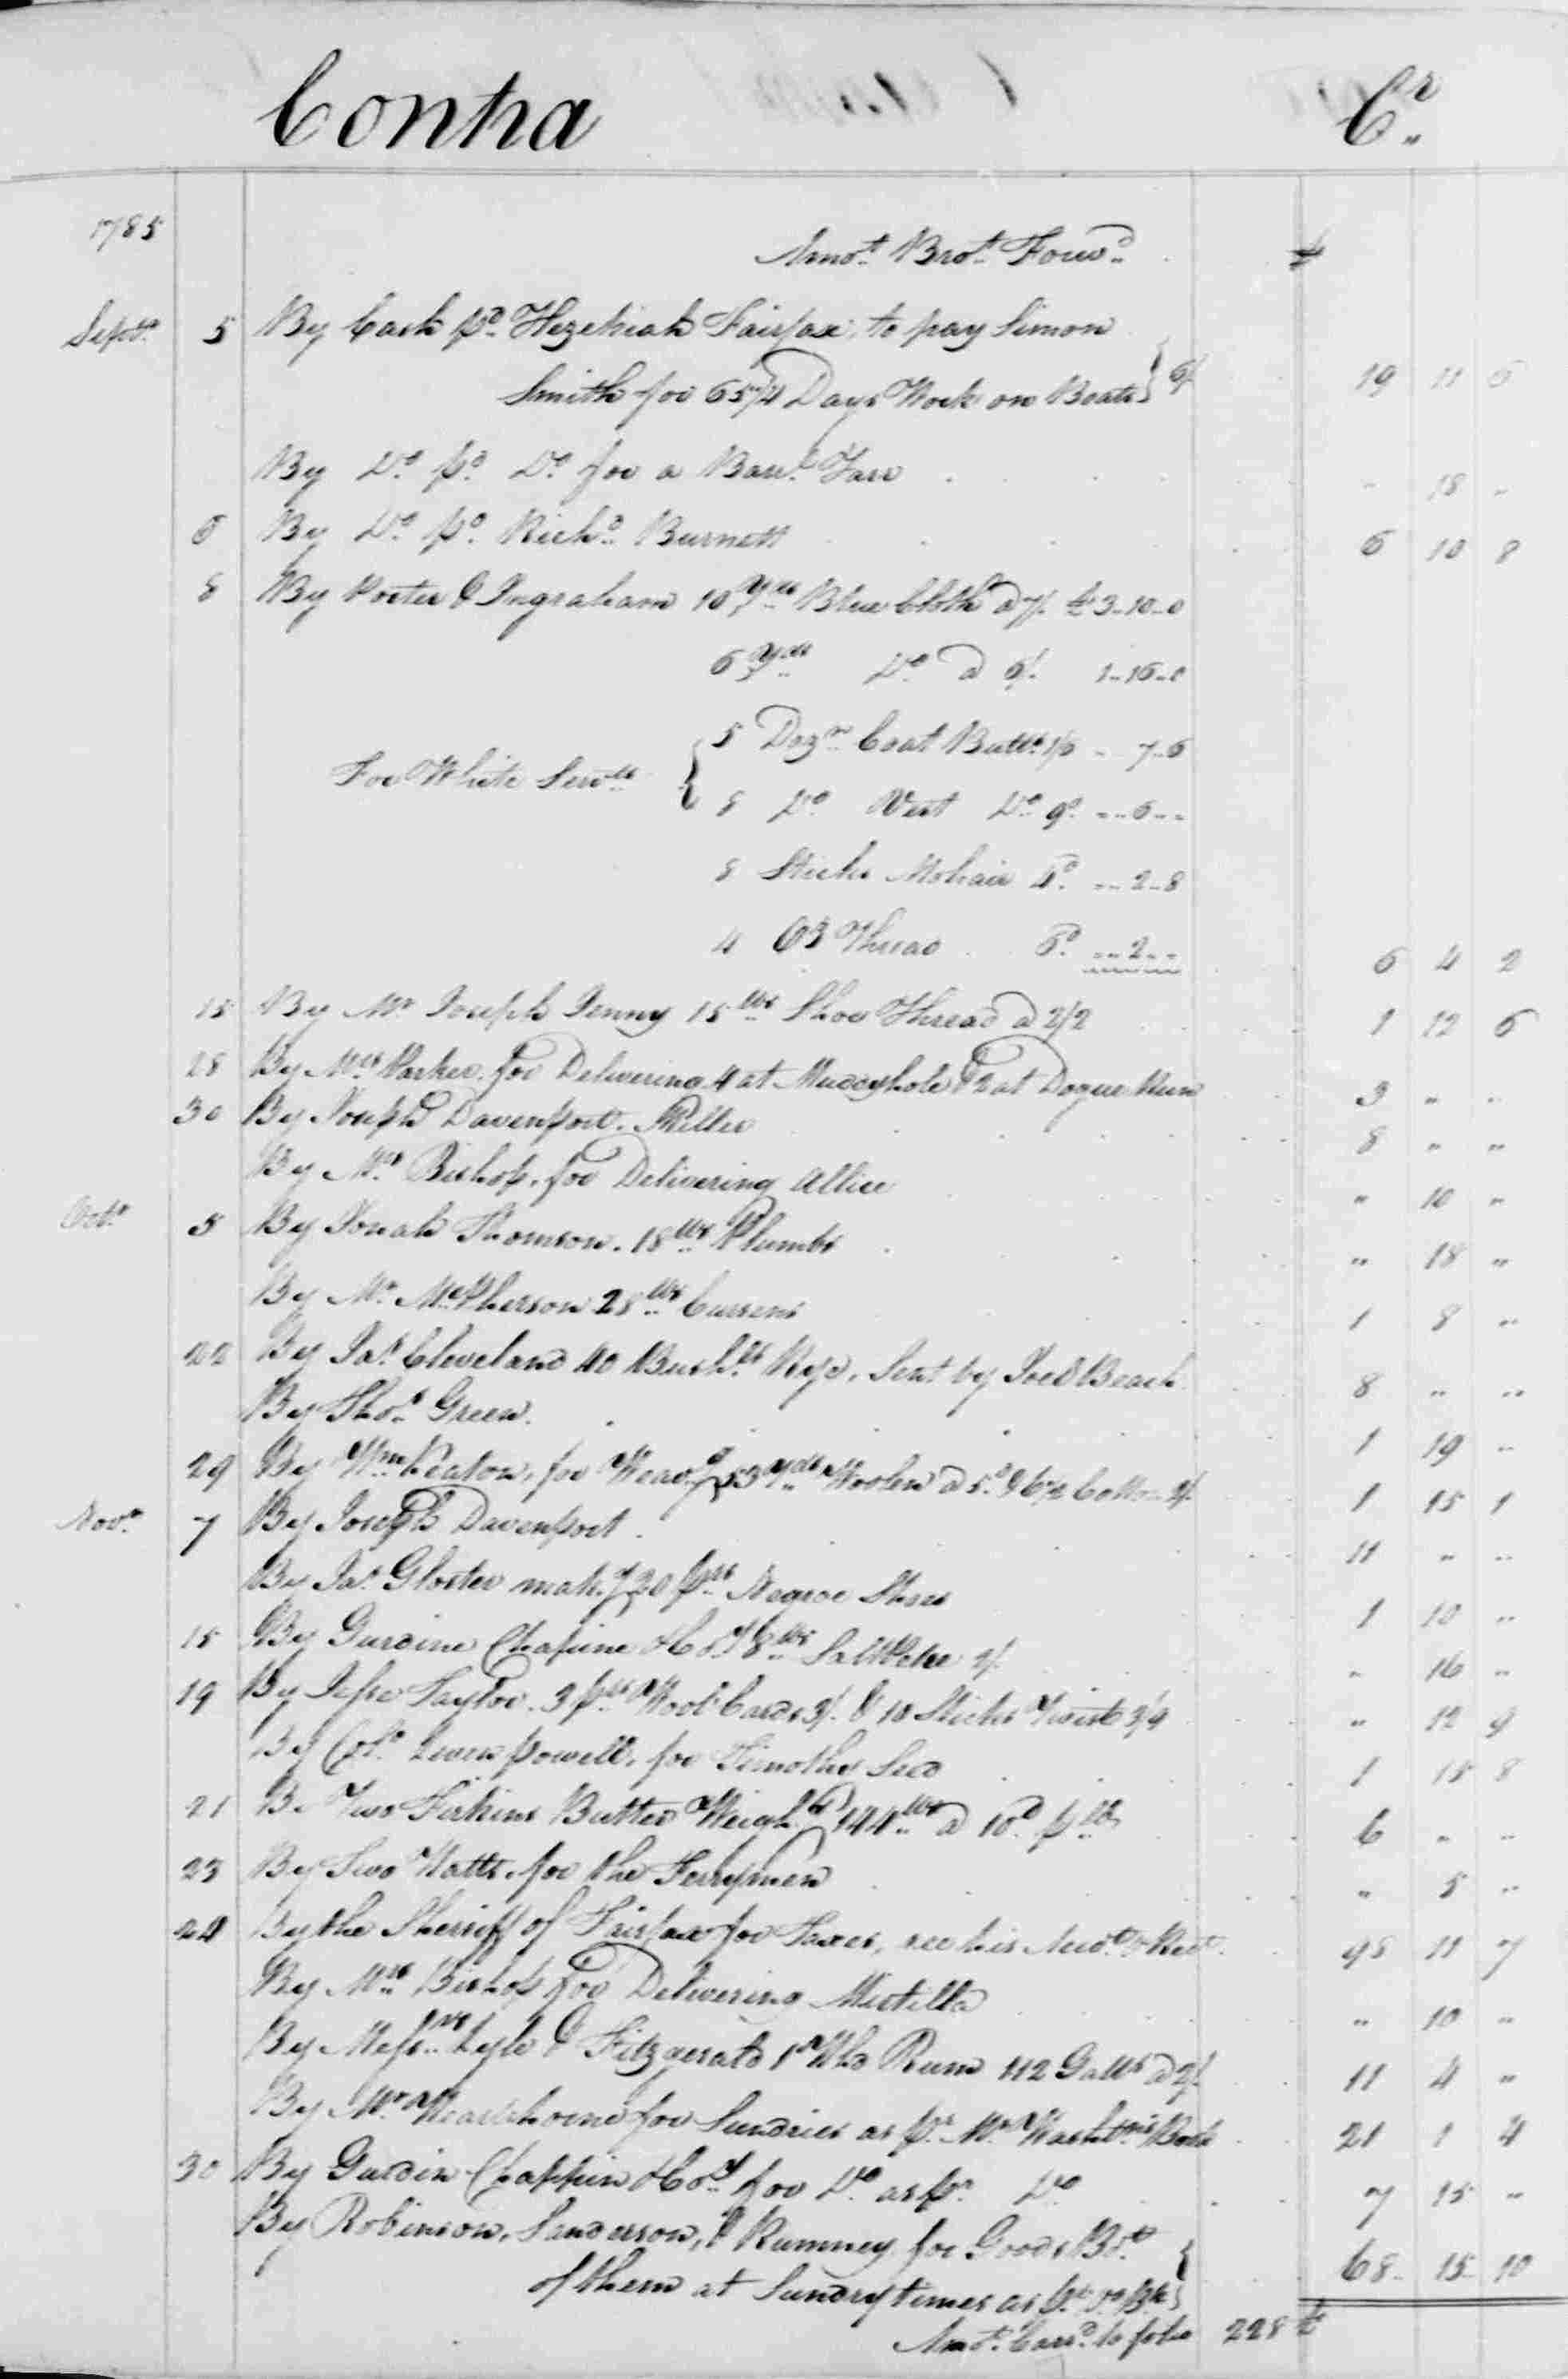 Contra Cr.
1785
Amot. Brot. Forwd. £
Septr. 5 By Cash pd. Hezekiah Fairfax, to pay Simon
Smith for 65 1/4 Days Work on Boats } 6/ 19 11 6
By Do. pd. Do. for a Barl. Tarr " 18 "
6 By Do. pd. Richd. Burnett 6 10 8
8 By Porter & Ingraham 10 Yds Blue Cloth a 7/. £3-10-0
6 Yds Do a 6/. 1-16-0
5 Dozn. Coat Butts. 1/6 - 7-6
For White Servts. { 8 Do Vest Do. 9d. -- 6 --
8 Sticks Mohair 4d. -- 2-8
4 Oz Thread 6d. -- 2 -- 6 4 2
15 By Mr Joseph Jenny 15 lbs. Shoe Thread a 2/2 1 12 6
28 By Mrs Parker for Delivering 4 at Muddyhole & 2 at Dogue Run 3 " "
30 By Joseph Davenport. Miller 8 " "
By Mrs. Bishop, for Delivering Allice " 10 "
Octr. 5 By Jonah Thomson. 18 lbs. Plumbs " 18 "
By Mr. McPherson 28 lbs. Currens 1 8 "
22 By Jas. Cleveland 40 Bushls. Rye, Sent by Joel Beach 8 " "
By Thos. Green 1 19 "
29 By Wm Keaton, for Weavg. 53 Yds. Woolen a 5d. & 6 1/2 Cotton 2/. 1 15 1
Novr. 7 By Joseph Davenport 11 " "
By Jas. Gloster makg. 20 prs. Negroe Shoes 1 10 "
15 By Gurdine Chapine & Coy. 8 lbs. Saltpetre 2/. " 16 "
19 By Jesse Taylor. 3 prs. Wool Cards 3/. & 10 Sticks Twist 3/9 " 12 9
By Colo. Leven powell, for Timothy Seed 1 18 8
21 By Two Firkins Butter Weighg. 144 lbs. a 10d. pr. lb 6 " "
23 By Two Hatts for the Ferrymen " 5 "
24 By the Sheriff of Fairfax for Taxes, see his Acct. & Rect. 98 11 7
By Mrs. Bishop for Delivering Mirtilla " 10 "
By Messrs. Lyle & Fitzgerald 1 Hhd Rum 112 Galls a 2/. 11 4 "
By Mr. Hartshorne for Sundries as pr. Mr. Washtn's Book 21 1 4
30 By Gurdin Chappin & Coy. for Do as pr. Do 7 15 "
By Robinson, Sanderson, & Rumney for Goods Bot. }
of them at Sundry times as pr. Do Bk } 68 15 10
Amot. Carrd. to folio 228 £